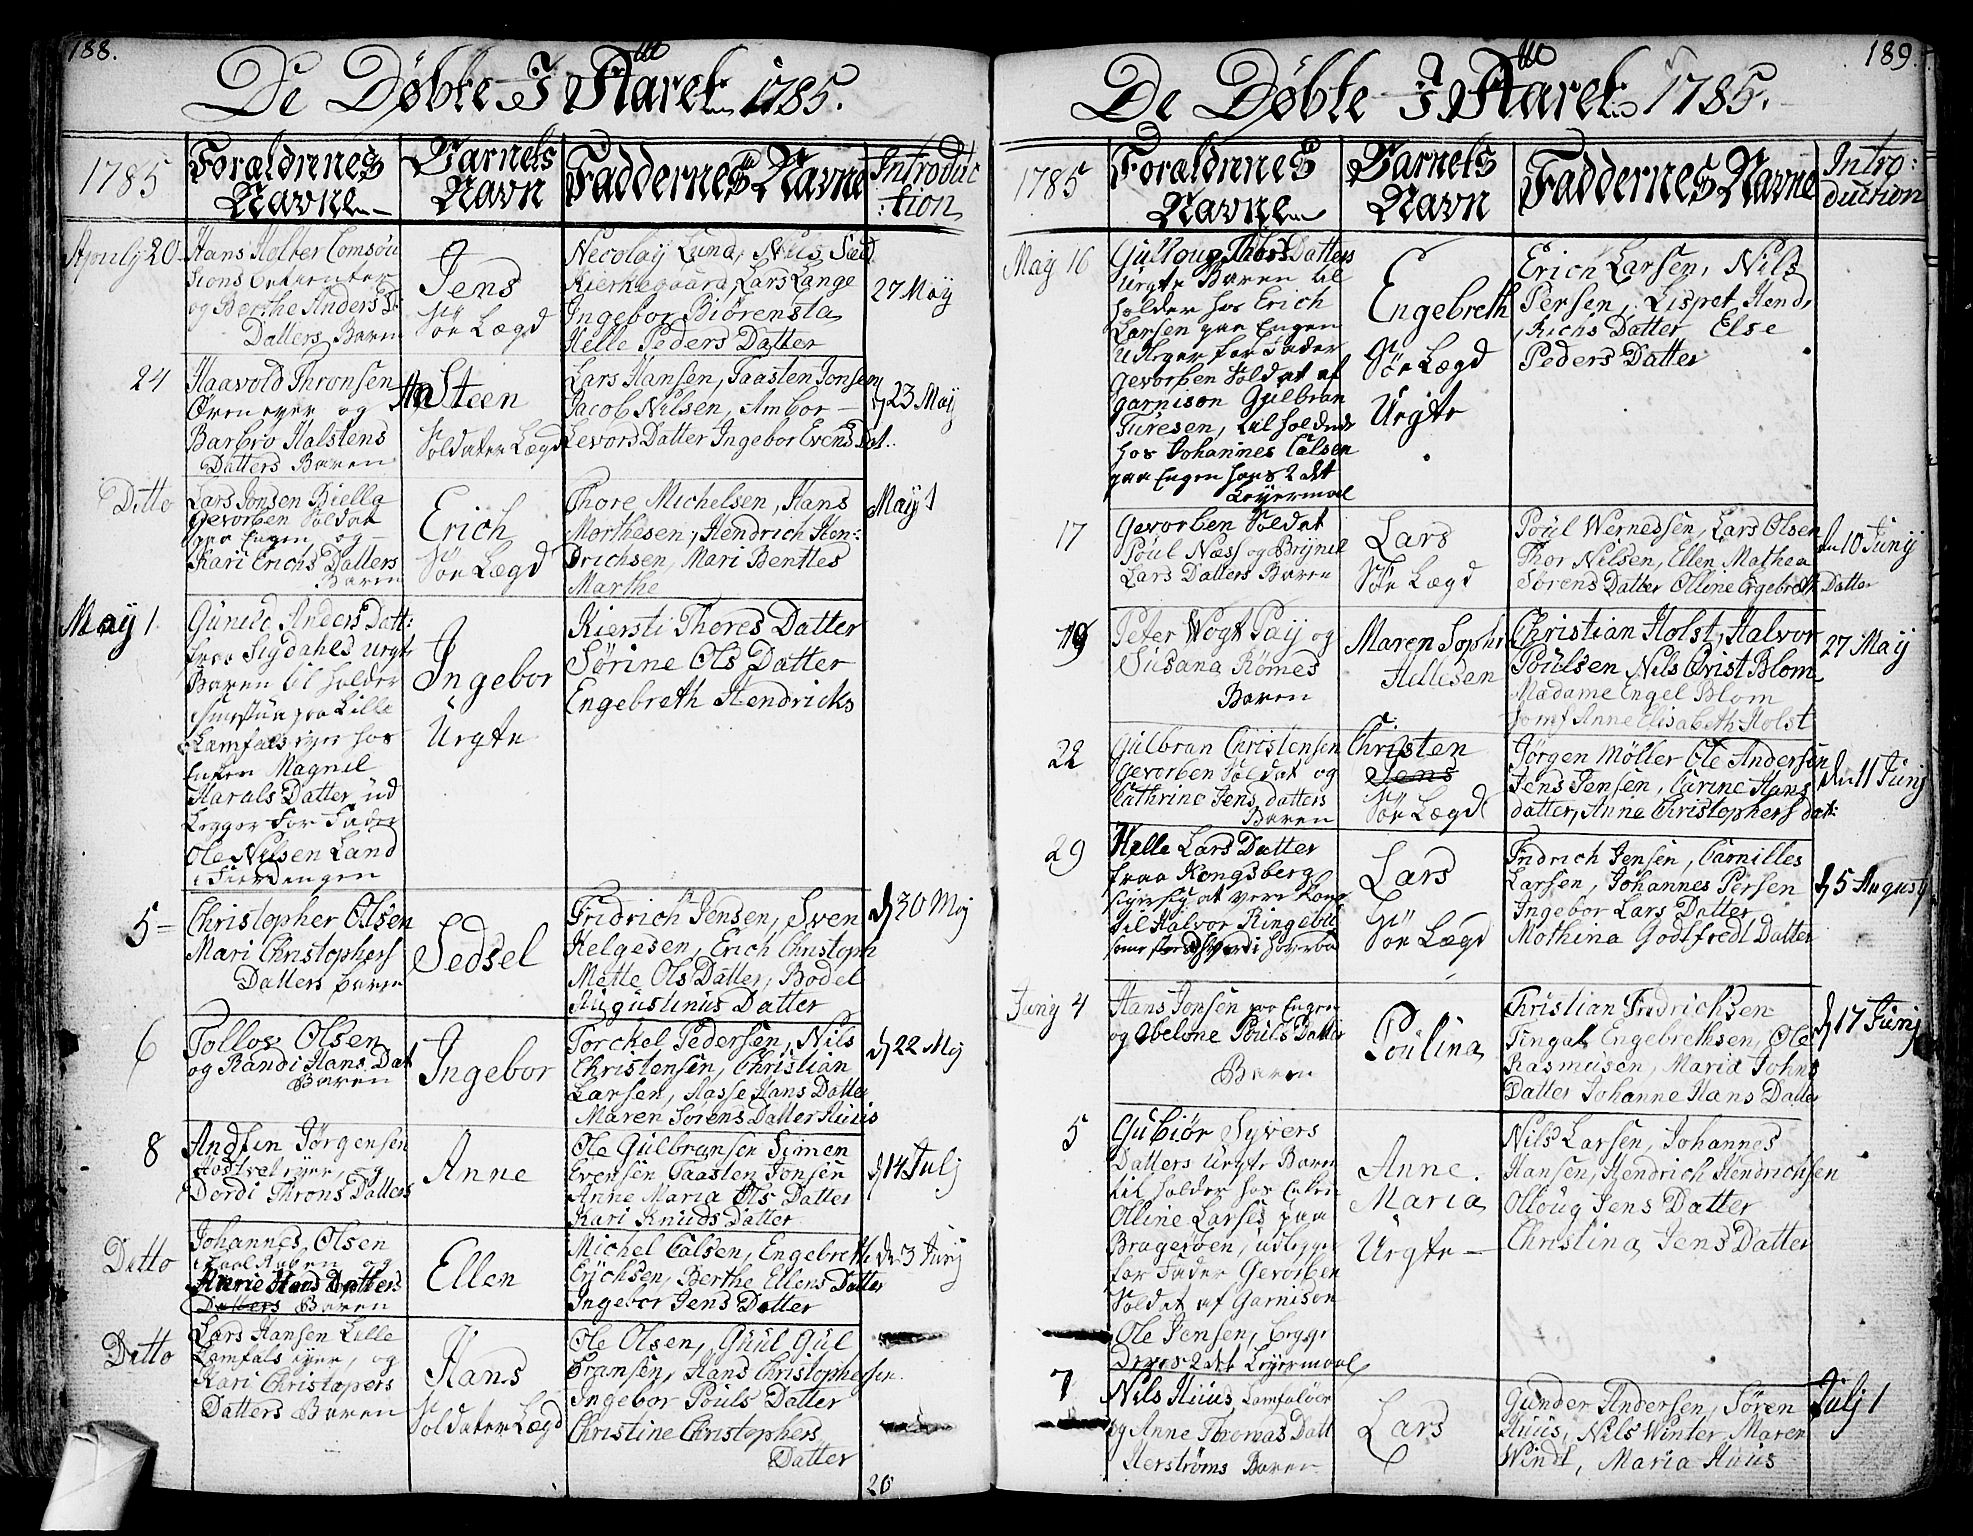 188.
De Døbte I Aaret 1785.
1785
Forældrenes Navne
Barnets Navn
Faddernes Navne
Introduction
Aprilj 20
Hans Holter
og Berthe Anders
Datters Baren
Jens
Søe Lægd
Necolaÿ Lund, Nils
Kierkegaard, Lars Lange
Ingebor Biørensta
Helle Peders Datter
27 Maÿ
24
Haavold Thronsen
og
Barbro Halstens
Datters Baren
Steen
Soldater Lægd
Lars Hansen, Taasten Jonsen
Jacob Nilsen, Ambor
Levors Datter Ingebor Evens Dat.
d 23 Maÿ
Ditto
Lars Jonsen Biella
Gevorben Soldat
paa Engen, og
Kari Erichs Datters
Baren
Erich
Søe Lægd
Thore Michelsen, Hans
Morthesen, Hendrich Hen:
Drichsen, Mari Bentles
Marthe
Maÿ 1
Maÿ 1
Gunild Anders Datt:
fraa Sigdahls urgte
Baren til holder
paa Lille
Lamfals hos
Enken Magnil
Harals Datter, ud
Legger For Fader
Ole Nilsen Land
i Fierdengen
Ingebor
Urgte
Kiersti Thores Datter
Sørine Ols Datter
Engebreth Hendricks
5
Christopher Olsen
Mari Christophers
Datters baren
Sedsel
Fridrich Jensen, Sven
Helgesen, Erich Christoph
Mette Ols Datter, Bodel
Augustinus Datter
d 30 Maj
6
Tollov Olsen
og Randi Hans Dat
Baren
Ingebor
Torckel Pedersen, Nils
Christensen, Christian
Larsen, Aasse Hans Datter
Maren Sørens Datter Huus
d 22 Maj
8
Andsen Jørgensen
og
Dordi Throns Datters
Anne
Ole Gulbransen Simen
Evensen Taasten Jonsen
Anne Maria Ols Datter
Kari Knuds Datter
d 14 Julj
Ditto
Johannes Olsen
og
Anne Hans Datters
Datters Baren
Ellen
Michel Calsen, Engebreth
Erÿchsen, Berthe Ellens Datter
Ingebor Jens Datter
de 3 Junj
Ditto
Lars Hansen Lille
Lamfals og
Kari Christopers
Datters Baren
Hans
Soldater Lægd
Ole Olsen, Guul Gul
bransen, Hans Christophersen
Ingebor Pouls Datter
Christine Christophers
Datter
20
189.
De Døbte I Aaret 1785.
1785
Forældrenes Navne
Barnets Navn
Faddernes Navne
Introduction
Maÿ 16
Gulloug Thors Datters
Urgte Baren til
holder hos Erich
Larsen paa Engen
Udleger for Fader
Gevorben Soldat af
Garnison Gulbran
Turesen, til holdende
hos Johannes Calsen
paa Engen hans 2 det
Leyermaal
Engebreth
Søe Lægd
Urgte
Erich Larsen, Nils
Persen, Lispet Hend,
Richs Datter Else
Peders Datter
17
Gevorben Soldat
Poul Næss og Brynil
Lars Datters Baren
Lars
Søe Lægd
Poul Wernedsen, Lars Olsen
Thor Nilsen, Ellen Mathea
Sørens Datter Olline Engebreth Datter
den 10 Junij
19
Peter Vogt Paÿ og
Susana Rømes
Baren
Maren Sophi
Hellesen
Christian Holst, Halvor
Poulsen Nils Christ Blom
Madame Engel Blom
Jomf Anne Elisabeth Holst
27 Maÿ
22
Gulbran Christensen
Gevorben Soldat og
Cathrine Jens datters
Baren
Christen
Jens
Søe Lægd
Jørgen Møller Ole Andersen
Jens Jensen, Carine Hans
datter, Anne Christophers dat:
den 11 Junj
29
Helle Lars Datter
fraa Kongsberg
siger sig at være kone
til Halvor Ringebu
Lars
Søe Lægd
Fridrich Jensen, Carnilles
Larsen, Johannes Persen
Ingebor Lars Datter
Mothina Godtfredt Datter
d 5 August
Junij 4
Hans Jonsen paa Engen
og Abelone Pouls Datter
Baren
Poulina
Christian Fredrichsen
Tingal Engebrethsen, Ole
Rasmusen, Maria Johns
Datter Johanne Hans Datter
d 17 Junj
5
Gubiør Syvers
Datters Urgte Baren
til holder hos Enken
Olline Larses paa
Bragerøen, udlegger
for Fader Gevorben
Soldat af Garnison
Ole Jensen,
Deres 2 det Leyermaal
Anne
Maria
Urgte
Nils Larsen, Johannes
Hansen, Hendrich Hendrichsen
Olloug Jens Datter
Christina Jens Datter
7
Nils Huus, Lamfaløer
og Anne Thomas Datt
Herstrøms Baren
Lars
Gunder Andersen, Søren
Huus, Nils Winter, Maren
Windt, Maria Huus
Julj 1